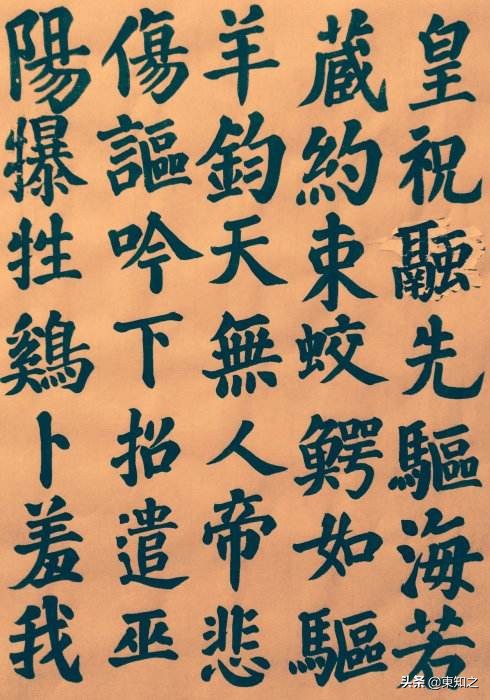 皇祝融先驅海若
蔵約束蛟鰐如驅
羊鈞天無人帝悲
傷謳吟下招遣巫
陽犦牲鷄卜羞我
头条 @東知之